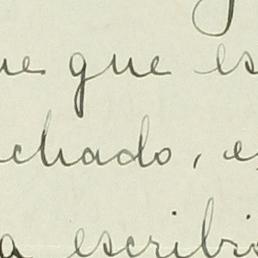 ue que es
chado, e
a escribi